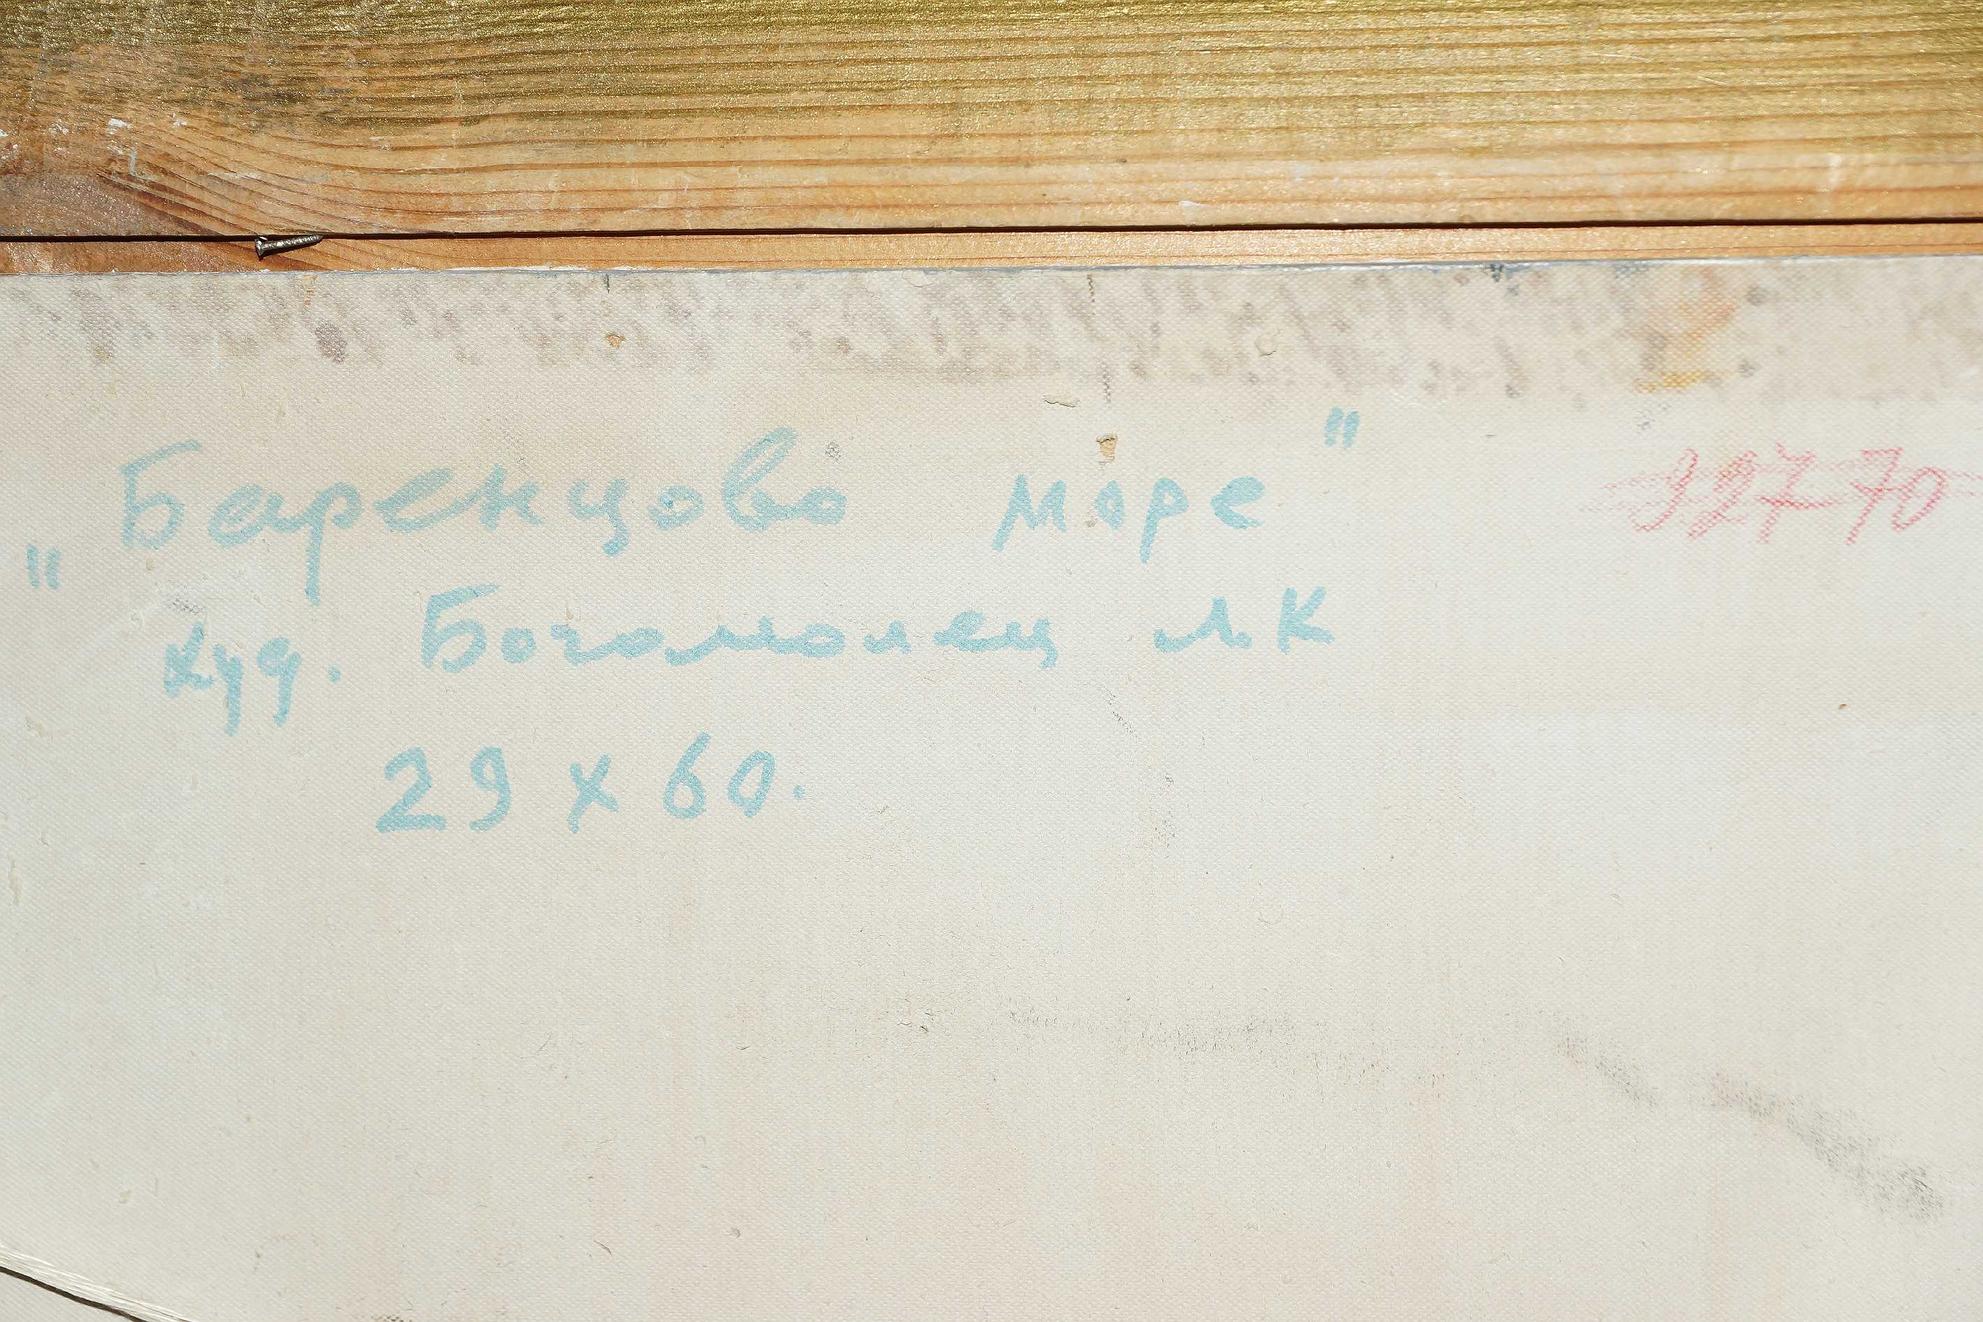 "Баренцово море"
худ. Богомолец Л.К
29 x 60.